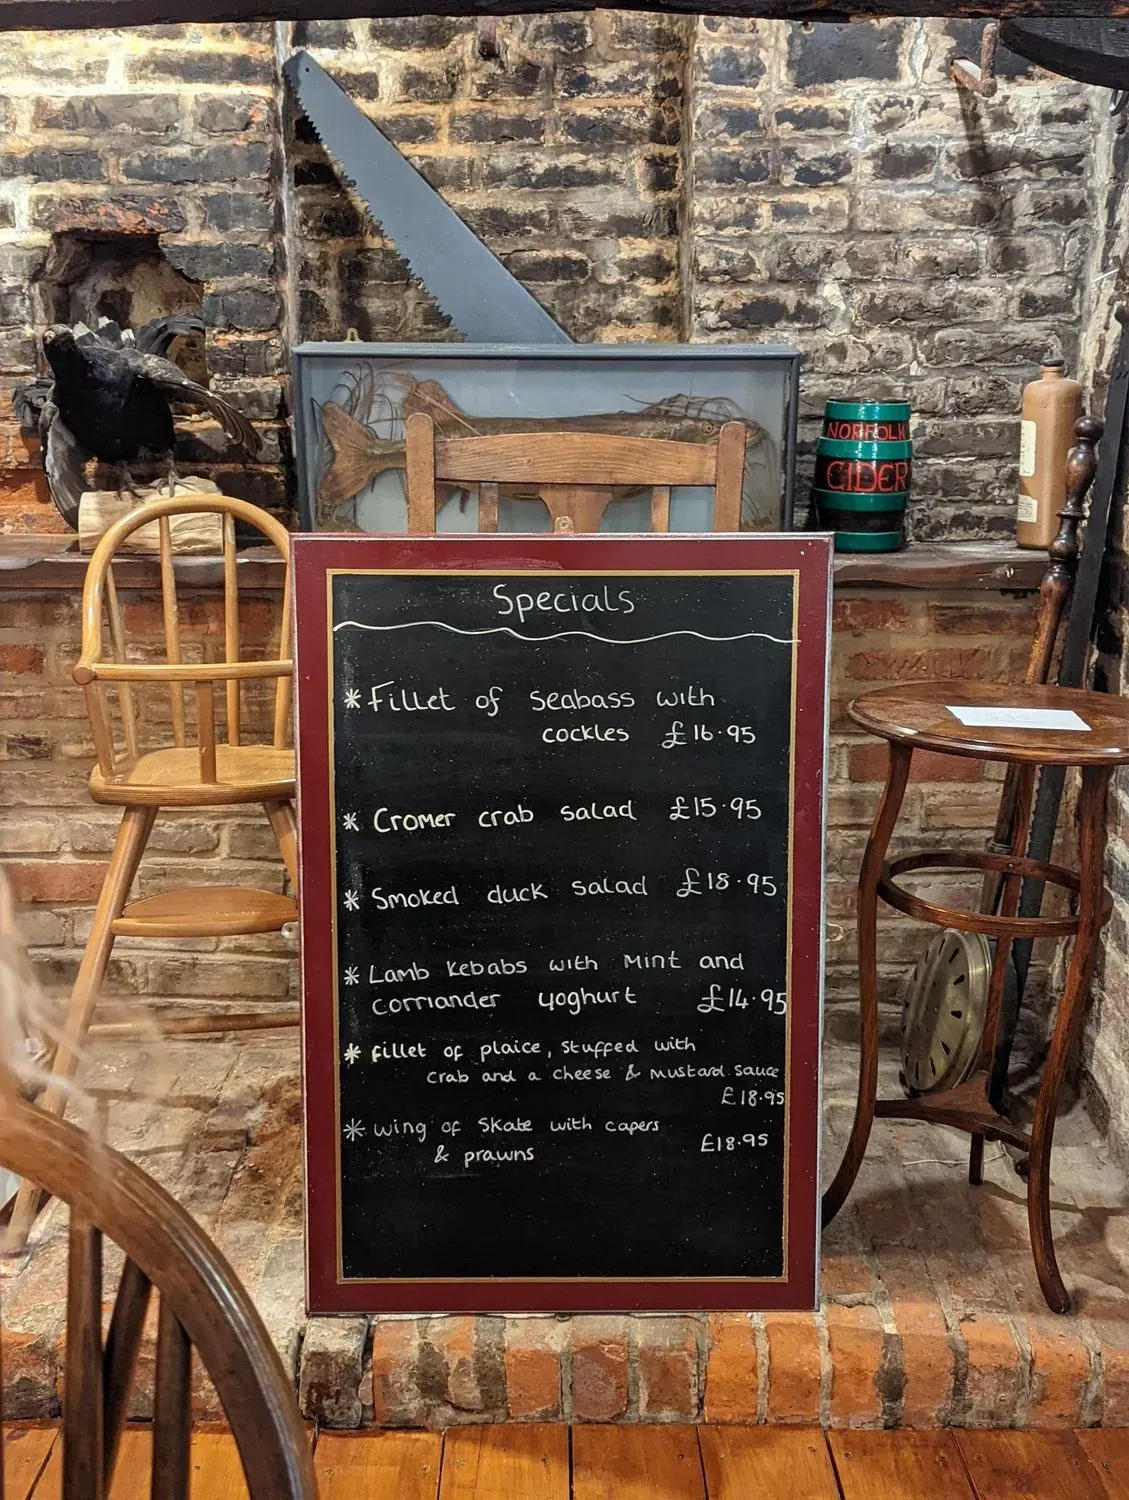 NORFOLK
CIDER
Specials
* Fillet of seabass with
cockles £16.95
* Cromer crab salad £15.95
* Smoked duck salad £18.95
* Lamb kebabs with mint and
corriander yoghurt £14.95
* fillet of plaice, stuffed with
crab and a cheese & mustard sauce
£18.95
* wing of skate with capers
& prawns £18.95